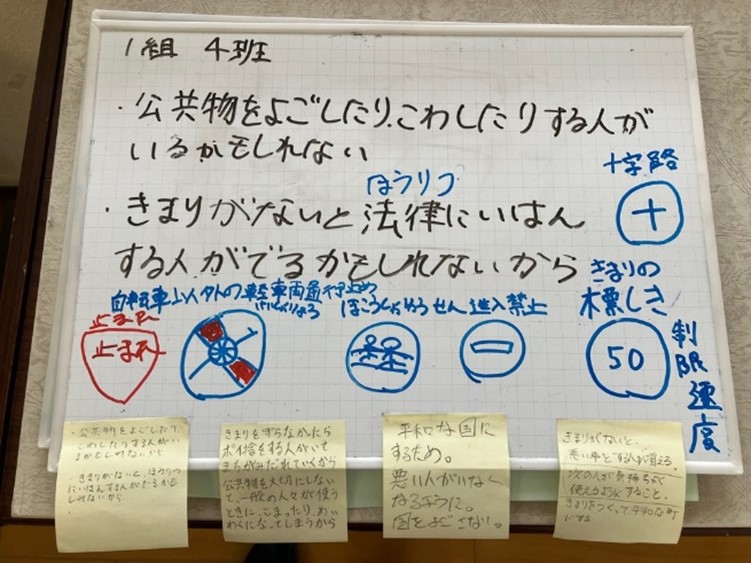 1組 4班
・公共物をよごしたり、こわしたりする人が
いるかもしれない
ほうりつ
・きまりがないと法律にいはん
する人がでるかもしれないから
十字路
きまりの
標しき
自転車以外の軽車両通行止め
けいしゃりょう
ほこうしゃゆうせん
進入禁止
止まれ
止まれ
50
制限速度
・公共物をよごしたり、
こわしたりする人がい
るかもしれないから
・きまりがないと、ほうりつ
にいはんする人がでるかも
しれないから
きまりを守らなかったら
ポイ捨をする人がいて
まちがみだれていくから
公共物を大切にしない
て、一般の人々が使う
ときに、こまったり、めい
わくになってしまうから
平和な国に
するため。
悪い人がいなく
なるように。
国をよごさない。
きまりがないと、
悪い事とする人が増える。
次の人が気持ちよく
使えるようにすること。
きまりをつくって平和な町
にする